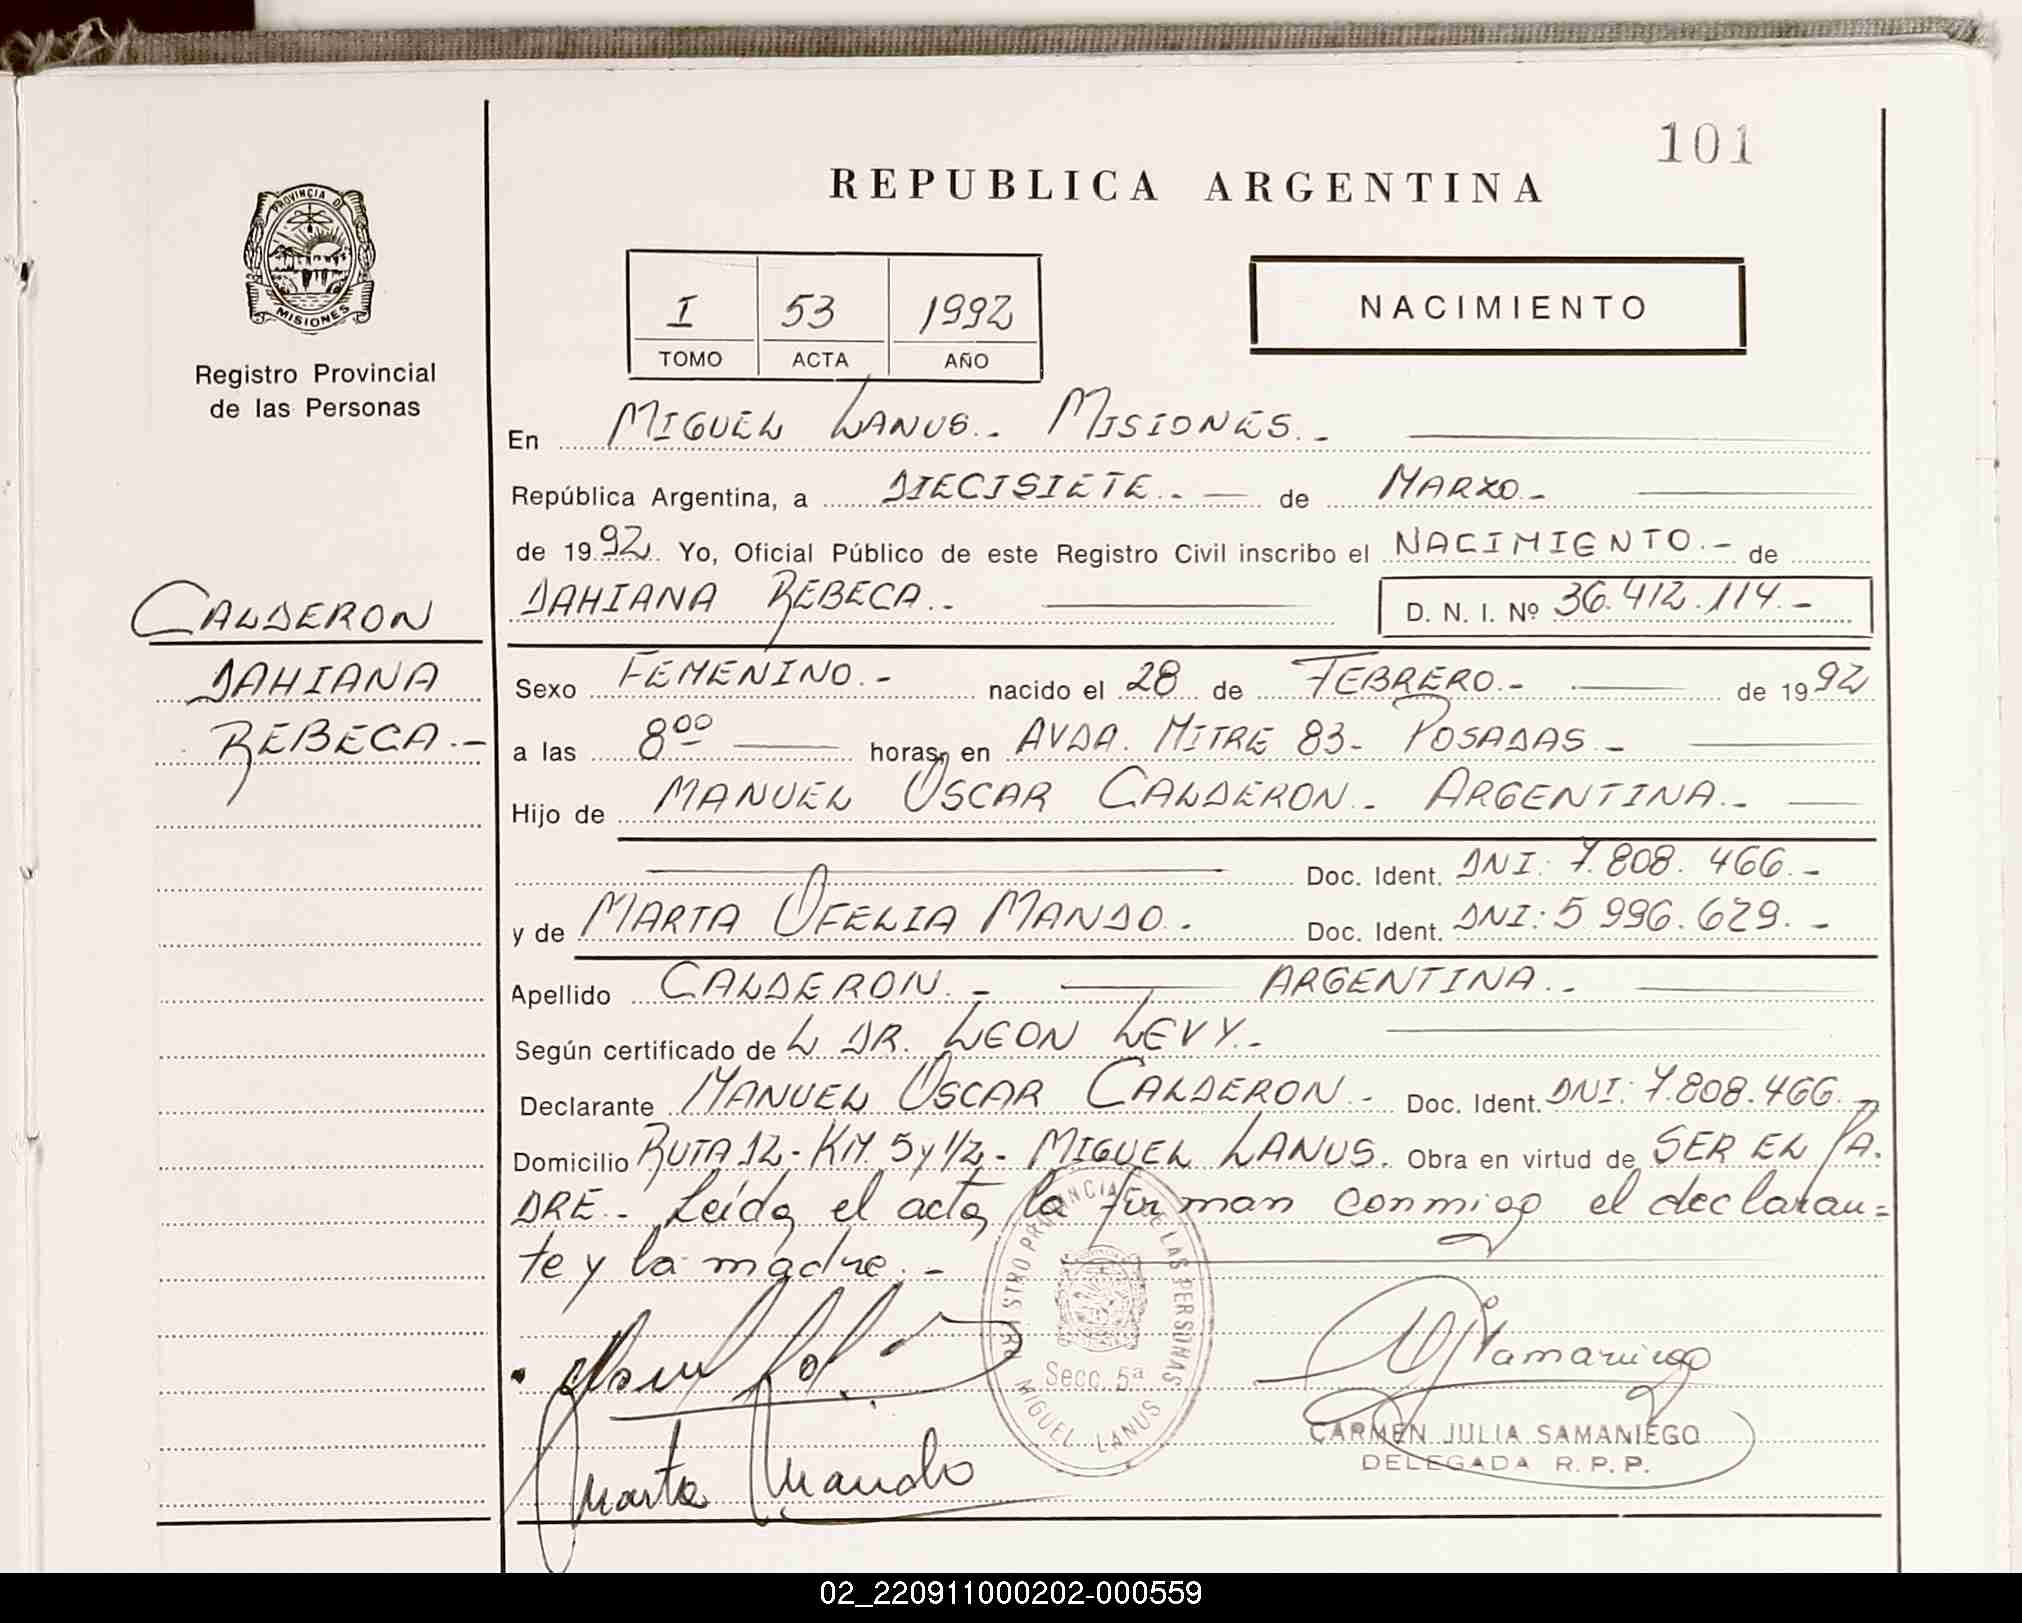 101
REPUBLICA ARGENTINA
PROVINCIA DE
MISIONES
Registro Provincial
de las Personas
I 53 1992
TOMO ACTA AÑO
NACIMIENTO
En MIGUEL LANUS.- MISIONES.-
República Argentina, a DIECISIETE.- de MARZO.-
de 1992. Yo, Oficial Público de este Registro Civil inscribo el NACIMIENTO.- de
DAHIANA REBECA.- D. N. I. Nº 36.412.114.-
CALDERON
DAHIANA
REBECA.-
Sexo FEMENINO.- nacido el 28 de FEBRERO.- de 1992
a las 8⁰⁰ horas, en AVDA. MITRE 83- POSADAS.-
Hijo de MANUEL OSCAR CALDERON.- ARGENTINA.-
Doc. Ident. DNI: 7.808.466.-
y de MARTA OFELIA MANDO. Doc. Ident. DNI: 5 996.629.-
Apellido CALDERON.- ARGENTINA.-
Según certificado de L DR. LEON LEVY.-
Declarante MANUEL OSCAR CALDERON.- Doc. Ident. DNI: 7.808.466.-
Domicilio RUTA 12- KM. 5 y 1/2- MIGUEL LANUS. Obra en virtud de SER EL PA.
DRE.- Leida el acta, la firman conmigo el declaran=
te y la madre.-
REGISTRO PROVINCIAL DE LAS PERSONAS
Secc. 5ª
MIGUEL LANUS
Marta Mando
CARMEN JULIA SAMANIEGO
DELEGADA R.P.P.
02_220911000202-000559